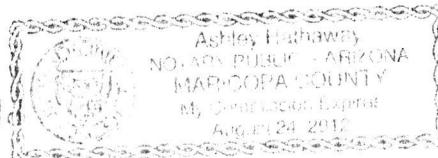 Ashley Hathaway
NOTARY PUBLIC - ARIZONA
MARICOPA COUNTY
My Commission Expires
August 24, 2012